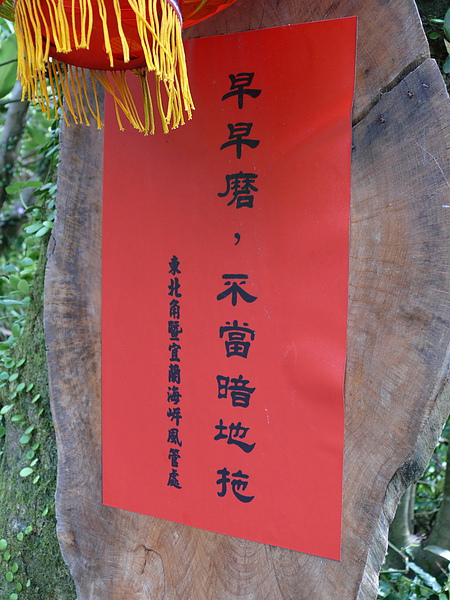 早早磨，不當暗地拖
東北角暨宜蘭海岸風管處